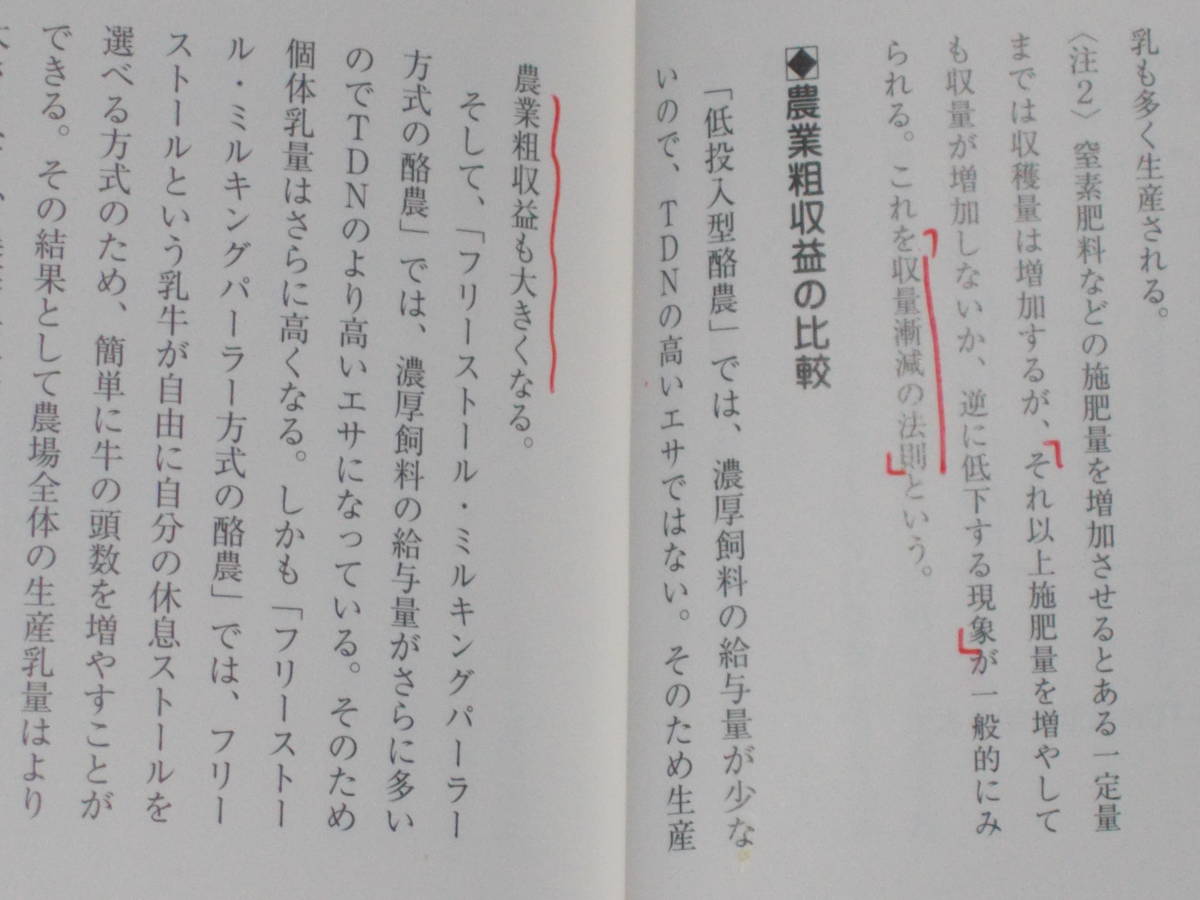 乳も多く生産される。
〈注2〉窒素肥料などの施肥量を増加させるとある一定量
までは収穫量は増加するが、それ以上施肥量を増やして
も収量が増加しないか、逆に低下する現象が一般的にみ
られる。これを収量漸減の法則という。
◆農業粗収益の比較
「低投入型酪農」では、濃厚飼料の給与量が少な
いので、TDNの高いエサではない。そのため生産
農業粗収益も大きくなる。
そして、「フリーストール・ミルキングパーラー
方式の酪農」では、濃厚飼料の給与量がさらに多い
のでTDNのより高いエサになっている。そのため
個体乳量はさらに高くなる。しかも「フリーストー
ル・ミルキングパーラー方式の酪農」では、フリー
ストールという乳牛が自由に自分の休息ストールを
選べる方式のため、簡単に牛の頭数を増やすことが
できる。その結果として農場全体の生産乳量はより